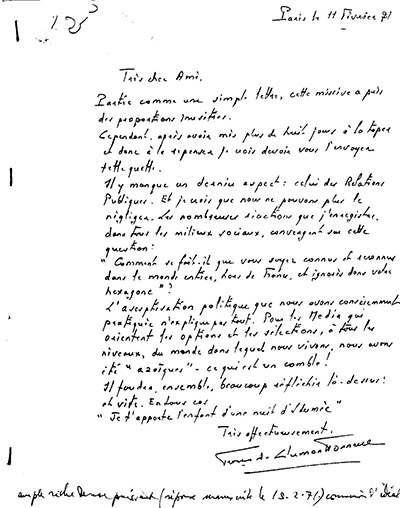 Paris le 11 Février 71
Très cher Ami.
Partie comme une simple lettre, cette missive a pris
des proportions inusitées.
Cependant, après avoir mis plus de huit jours à la taper
et donc à la repenser je crois devoir vous l'envoyer
telle quelle.
Il y manque un dernier aspect : celui des Relations
Publiques. Et je crois que nous ne pouvons plus le
négliger. Les nombreuses réactions que j'enregistre,
dans tous les milieux sociaux, convergent sur cette
question :
"Comment se fait-il que vous soyez connus et reconnus
dans le monde entier, hors de France, et ignorés dans votre
hexagone" ?
L'aseptisation politique que nous avons consciemment
pratiquée n'explique pas tout. Pour les Media qui
orientent les options et les sélections, à tous les
niveaux, du monde dans lequel nous vivons, nous avons
été "azoïques" - ce qui est un comble !
Il faudra, ensemble, beaucoup réfléchir là-dessus :
et vite. En tous cas
"Je t'apporte l'enfant d'une nuit d'Idumée"
Très affectueusement.
(réponse manuscrite le 19.2.71)